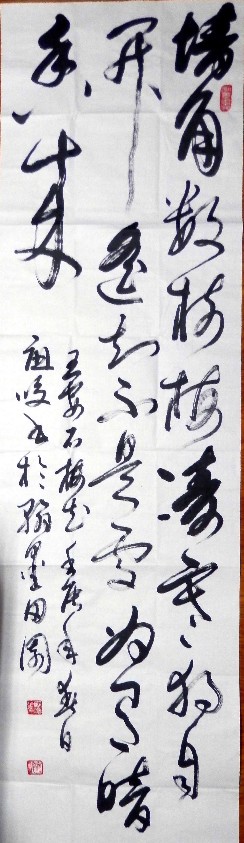 墙角数枝梅凌寒独自
开遥知不是雪为有暗
香来
王安石梅花壬辰年春日
书于翰墨田园